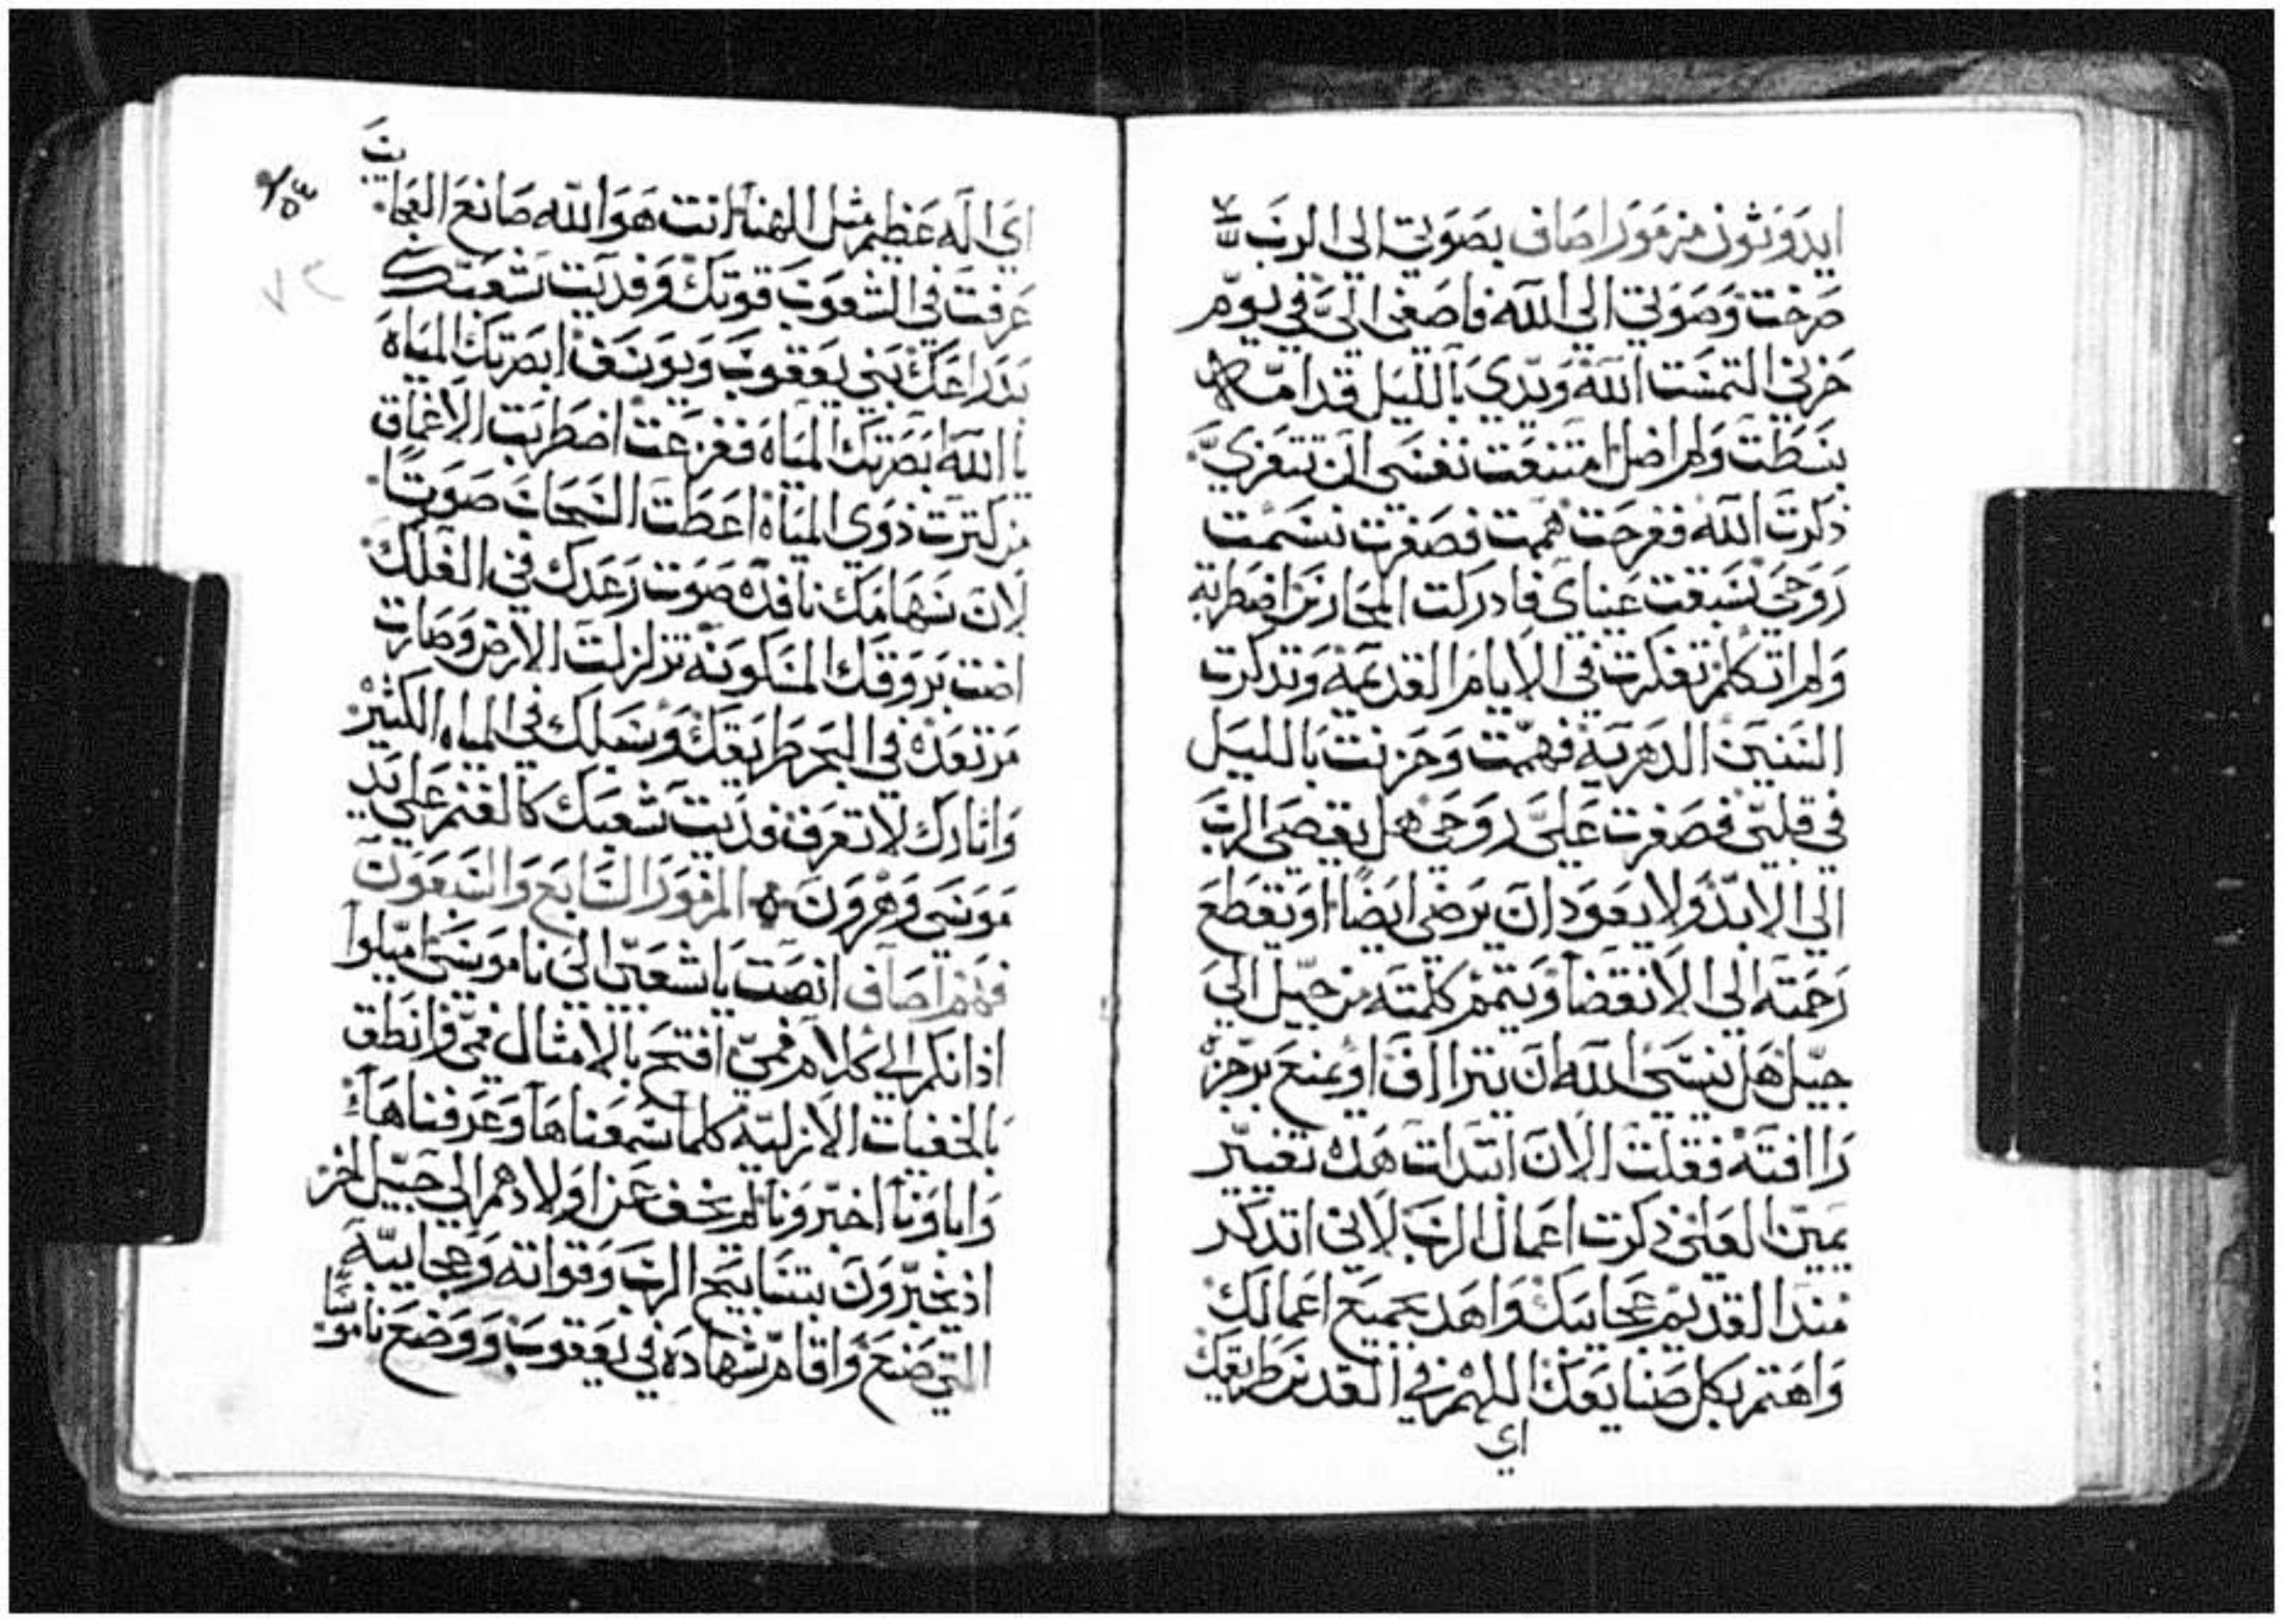 ايدوثون مزمور اصاف بصوتي الى الرب
صرخت وصوتي الي الله فاصغى اليّ في يوم
حزني التمست الله ويدي بالليل قدامه
بسطت ولم اضل امتنعت نفسي ان تتعزي
ذكرت الله ففرحت هممت فصغرت نسمت
روحي سبقت عيناي فادركت المحارس اضطربة
ولم اتكلم تفكرت في الايام القديمه وتدكرت
السنين الدهرية فهمت وحزنت بالليل
في قلبي فصغرت عليّ روحي هل يقصي الرب
الي الابد ولا يعود ان يرضي ايضا او يقطع
رحمته الي الانقضا ويتمم كلمته من جيل الي
جيل هل ينسي الله ان يتراف او يمنع برجزه
راافته فقلت الان ابتدات هده تغيير
يمين العلي ذكرت اعمال الرب لاني اتدكر
مند القديم عجايبك واهد بجميع اعمالك
واهتم بكل صنايعك اللهم في القدس طريقك
اي
اي اله عظيم مثل الهنا انت هو الله صانع العجايب
عرفت في الشعوب قوتك وفديت شعبك
بدراعك بني يعقوب ويوسف ابصرتك المياه
يا الله ابصرتك المياه ففزعت اضطربت الاعماق
من كترت دوي المياه اعطت السحاب صوتا
لان سهامك نافده صوت رعدك في الفلك
اضت بروقك المسكونه تزلزلت الارض وصارت
مرتعده في البحر طريقك وسبلك في المياه الكثيره
واتارك لا تعرف فديت شعبك كالغنم علي يد
موسي وهرون المزمور السابع والسبعون
فهم اصاف انصت يا شعبي الي ناموسي اميلوا
اذانكم الي كلام فمي افتح بالامثال فمي وانطق
بالخفيات الازليه كلما سمعناها وعرفناها
واباونا اخبرونا لم يخف عن اولادهم الي جيل اخر
اذ يخبرون بتسابيح الرب وقواته وعجايبه
التي صنع واقام شهاده في يعقوب ووضع ناموسا
٥٤